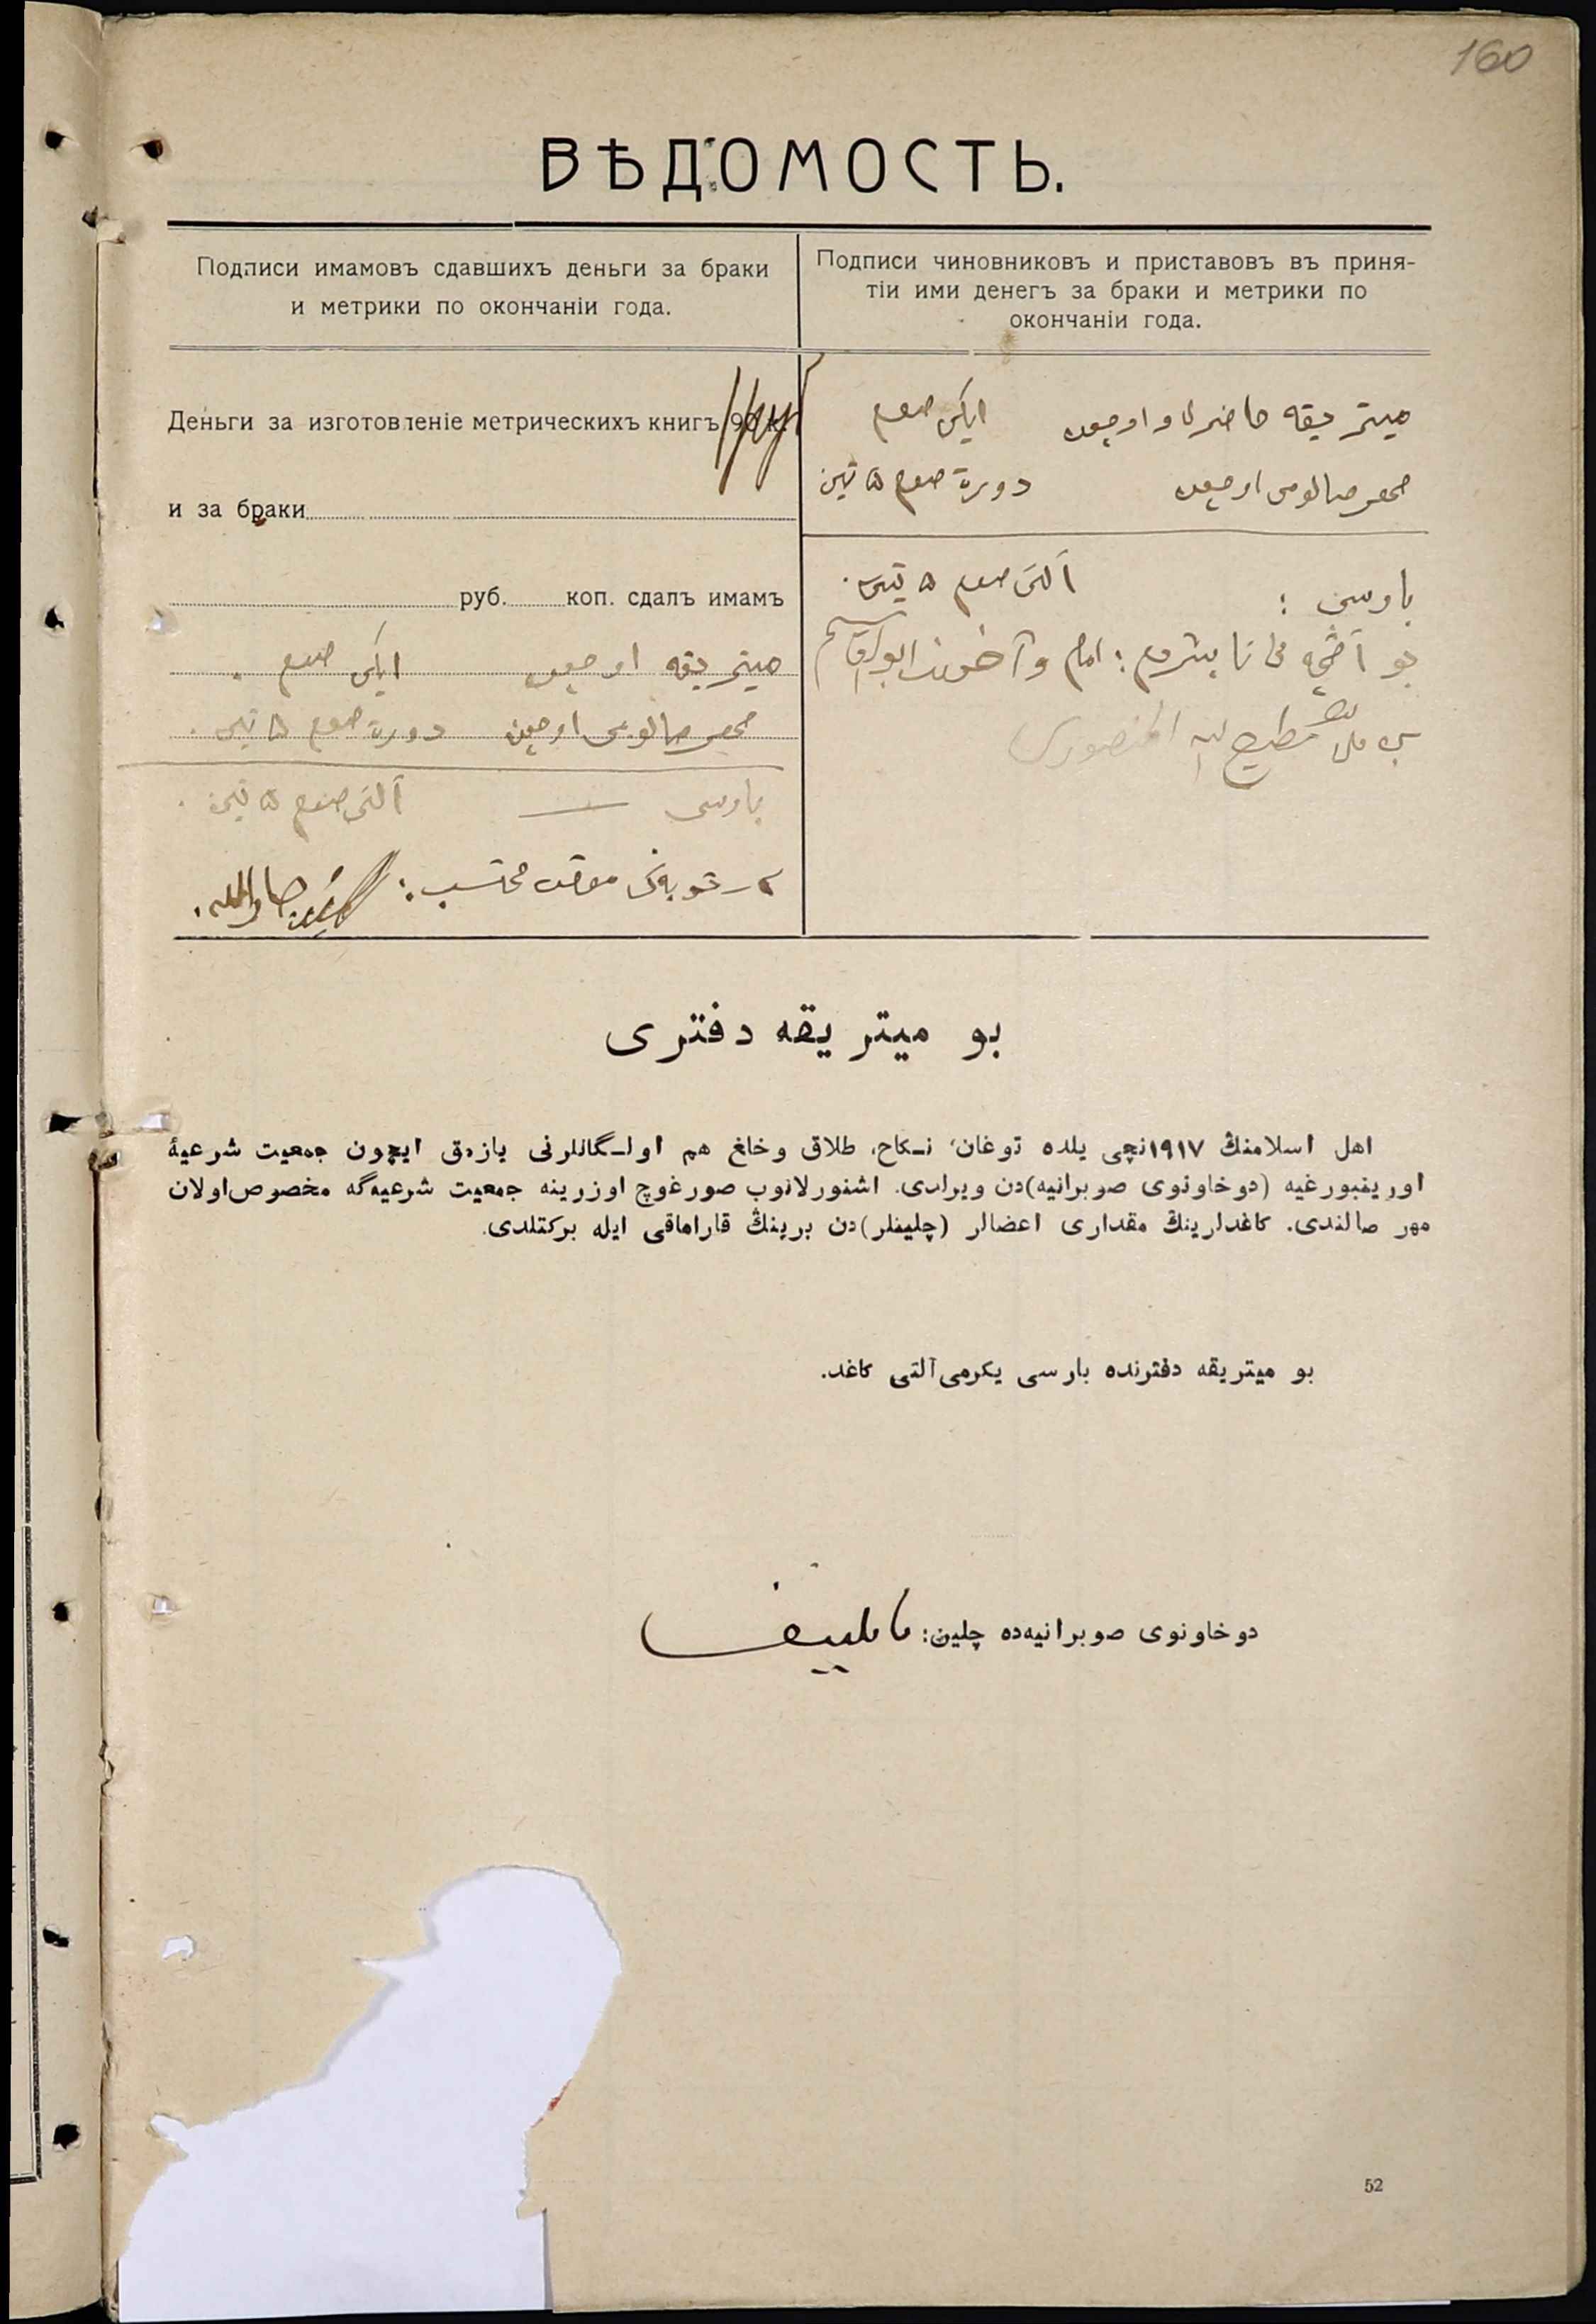 160
ВѢДОМОСТЬ.
Подписи имамовъ сдавшихъ деньги за браки
и метрики по окончаніи года.
Подписи чиновниковъ и приставовъ въ приня-
тіи ими денегъ за браки и метрики по
окончаніи года.
Деньги за изготовленіе метрическихъ книгъ 90 к.
и за браки
руб. коп. сдалъ имамъ
میتریقه اوچون ایکی صوم
اوچون دورت صوم ۵ تین
بارسی آلتی صوم ۵ تین
محتسب:
میتریقه اوچون ایکی صوم
اوچون دورت صوم ۵ تین
بارسی: آلتی صوم ۵ تین
بو آقچه نی تابشردم: امام و آخوند ابوالقاسم
المنصوری
بو میتریقه دفتری
اهل اسلامنڭ ۱۹۱۷نچی یلده توغان، نـکاح، طلاق وخلغ هم اولـگانلرنی یازمق ایچون جمعیت شرعیهٔ
اورینبورغیه (دوخاونوی صوبرانیه)دن ویرلدی. اشنورلانوب صورغوچ اوزرینه جمعیت شرعیه‌گه مخصوص اولان
مهر صالندی. کاغدلرینڭ مقداری اعضالر (چلینلر)دن برینڭ قاراماقی ایله برکتلدی.
بو میتریقه دفترنده بارسی یکرمی آلتی کاغد.
دوخاونوی صوبرانیه‌ده چلین:
52